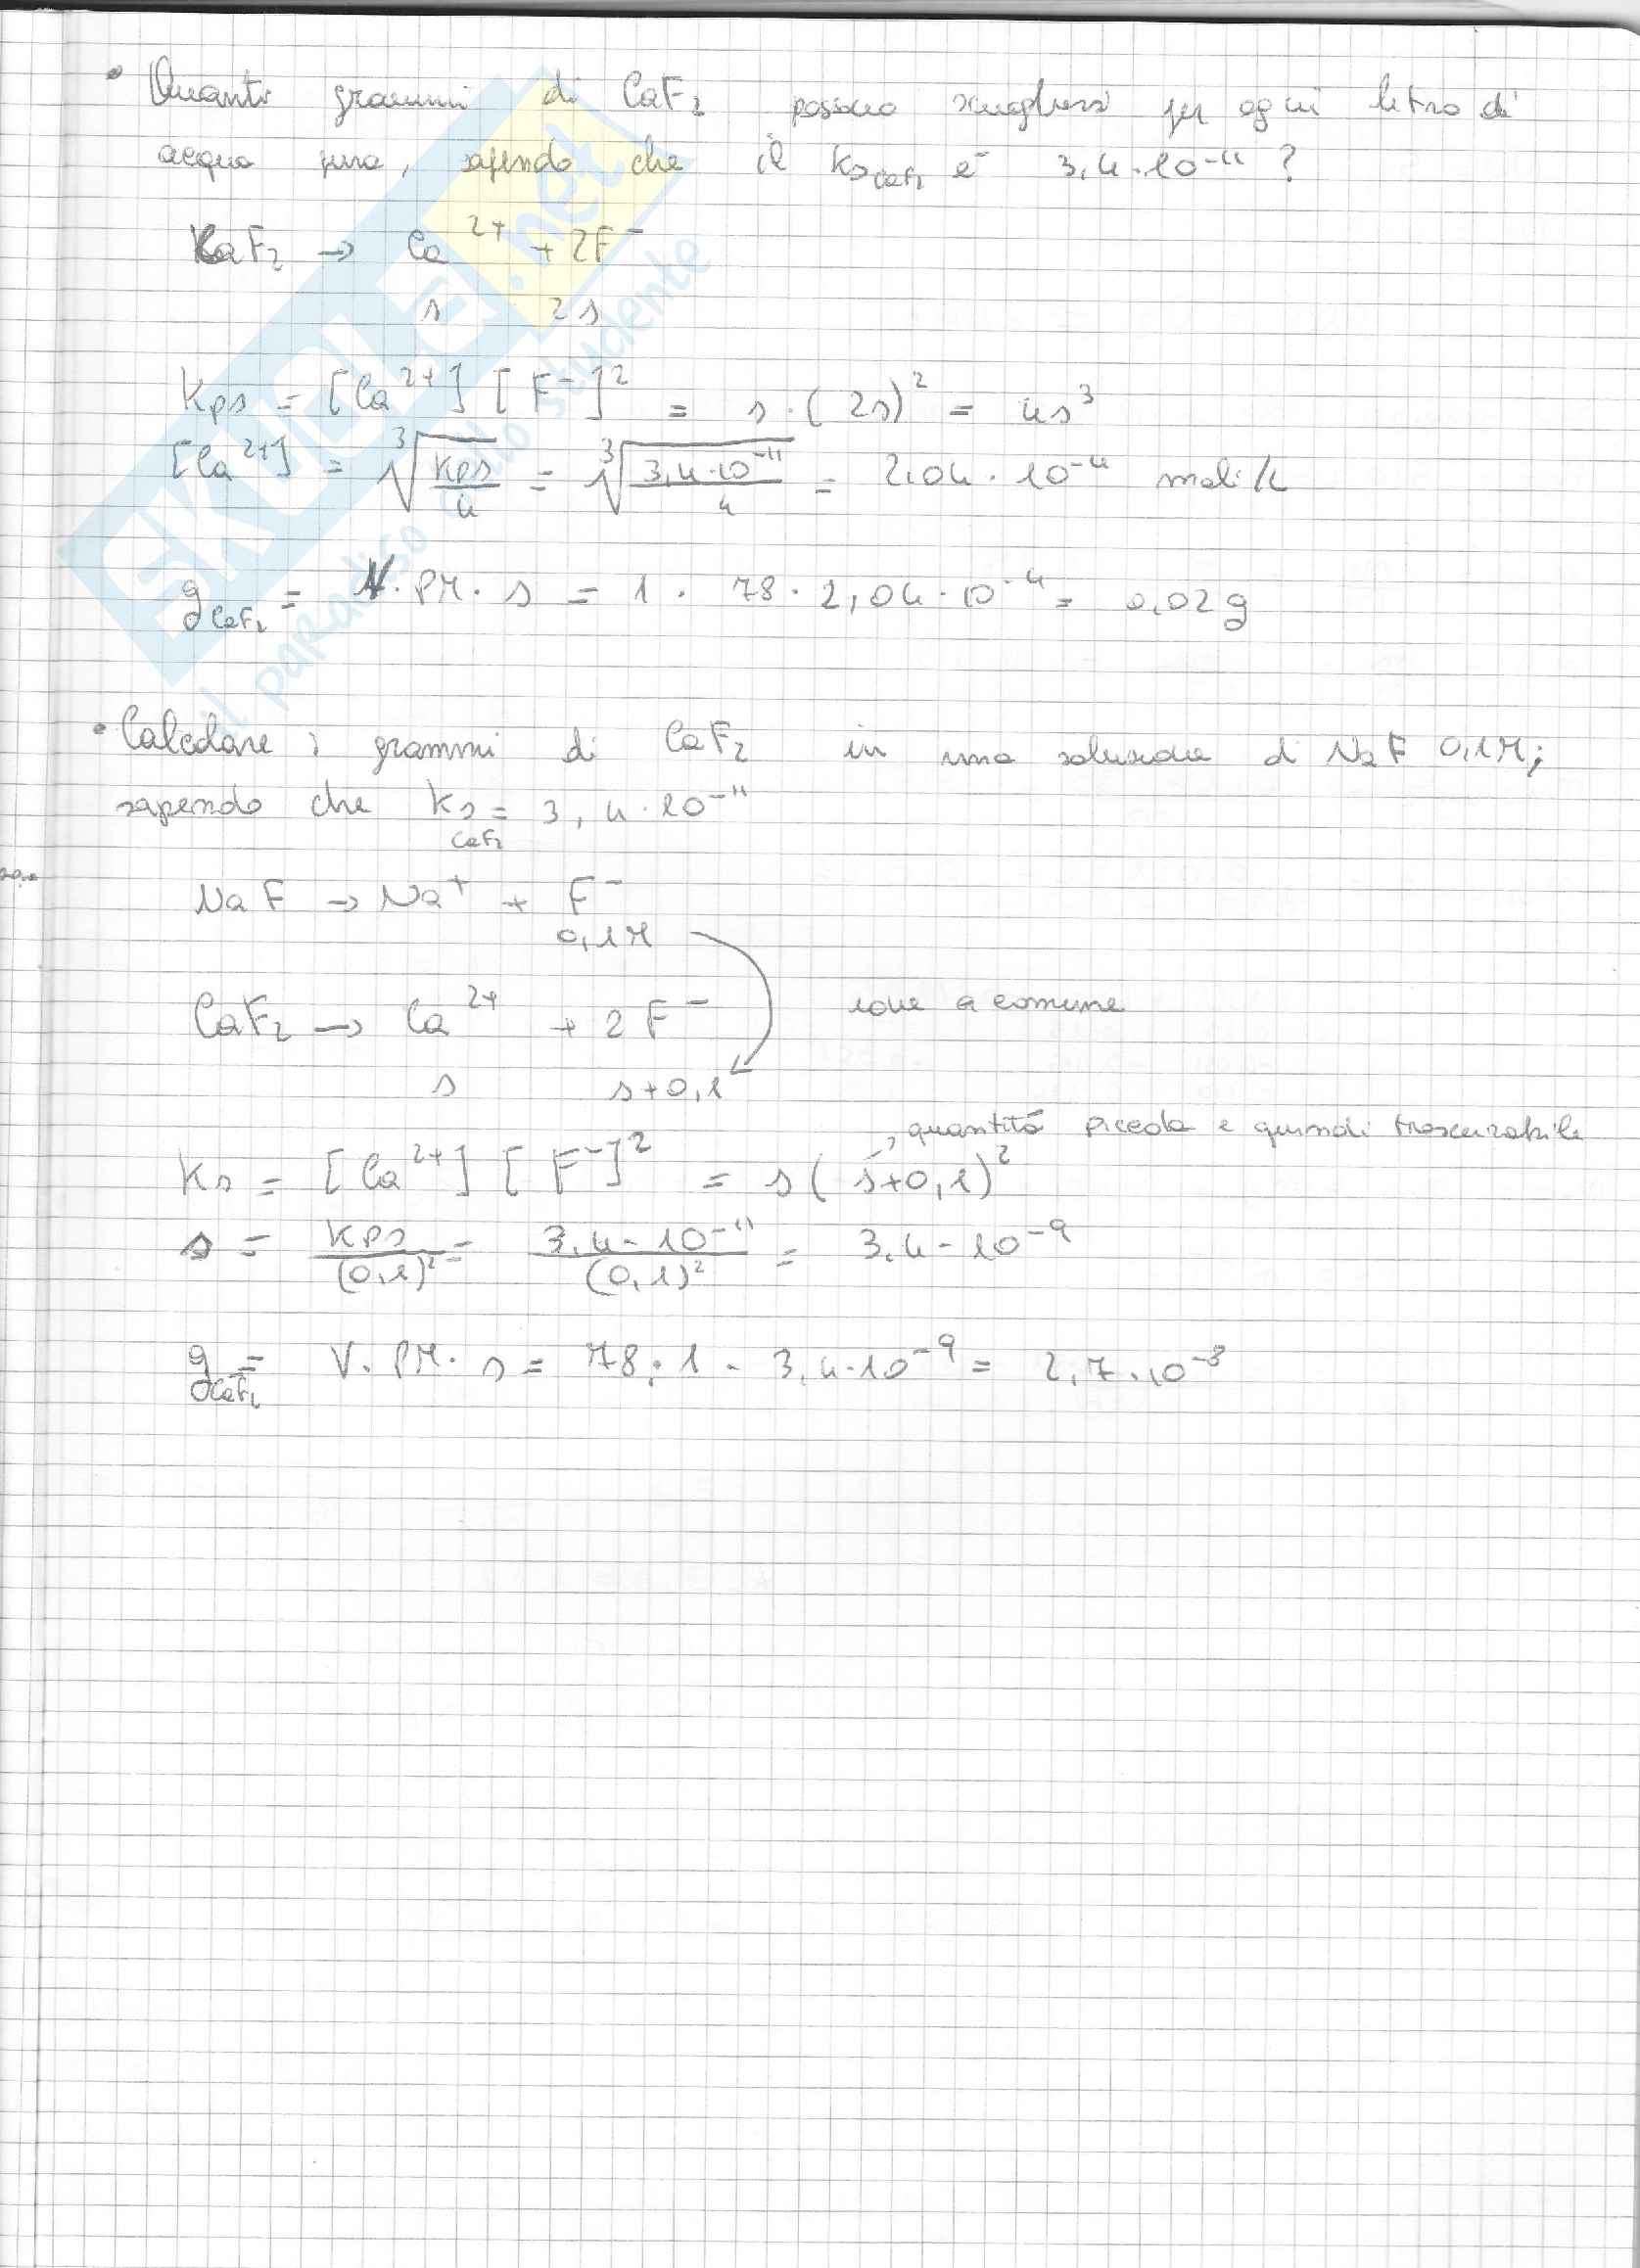 • Quanti grammi di CaF₂ possono sciogliersi per ogni litro di
acqua pura, sapendo che il Ks CaF₂ è 3,4·10⁻¹¹ ?
CaF₂ → Ca²⁺ + 2F⁻
s 2s
Kps = [Ca²⁺] [F⁻]² = s·(2s)² = 4s³
[Ca²⁺] = ³√(Kps/4) = ³√(3,4·10⁻¹¹/4) = 2,04·10⁻⁴ moli/L
g CaF₂ = V·PM·s = 1·78·2,04·10⁻⁴ = 0,02g
• Calcolare i grammi di CaF₂ in una soluzione di NaF 0,1M;
sapendo che Ks CaF₂ = 3,4·10⁻¹¹
NaF → Na⁺ + F⁻
0,1M
CaF₂ → Ca²⁺ + 2F⁻ ione a comune
s s+0,1
quantità piccola e quindi trascurabile
Ks = [Ca²⁺] [F⁻]² = s(s+0,1)²
s = Kps/(0,1)² = 3,4·10⁻¹¹/(0,1)² = 3,4·10⁻⁹
g CaF₂ = V·PM·s = 78·1·3,4·10⁻⁹ = 2,7·10⁻⁸
SKUOLA.net
il paradiso dello studente